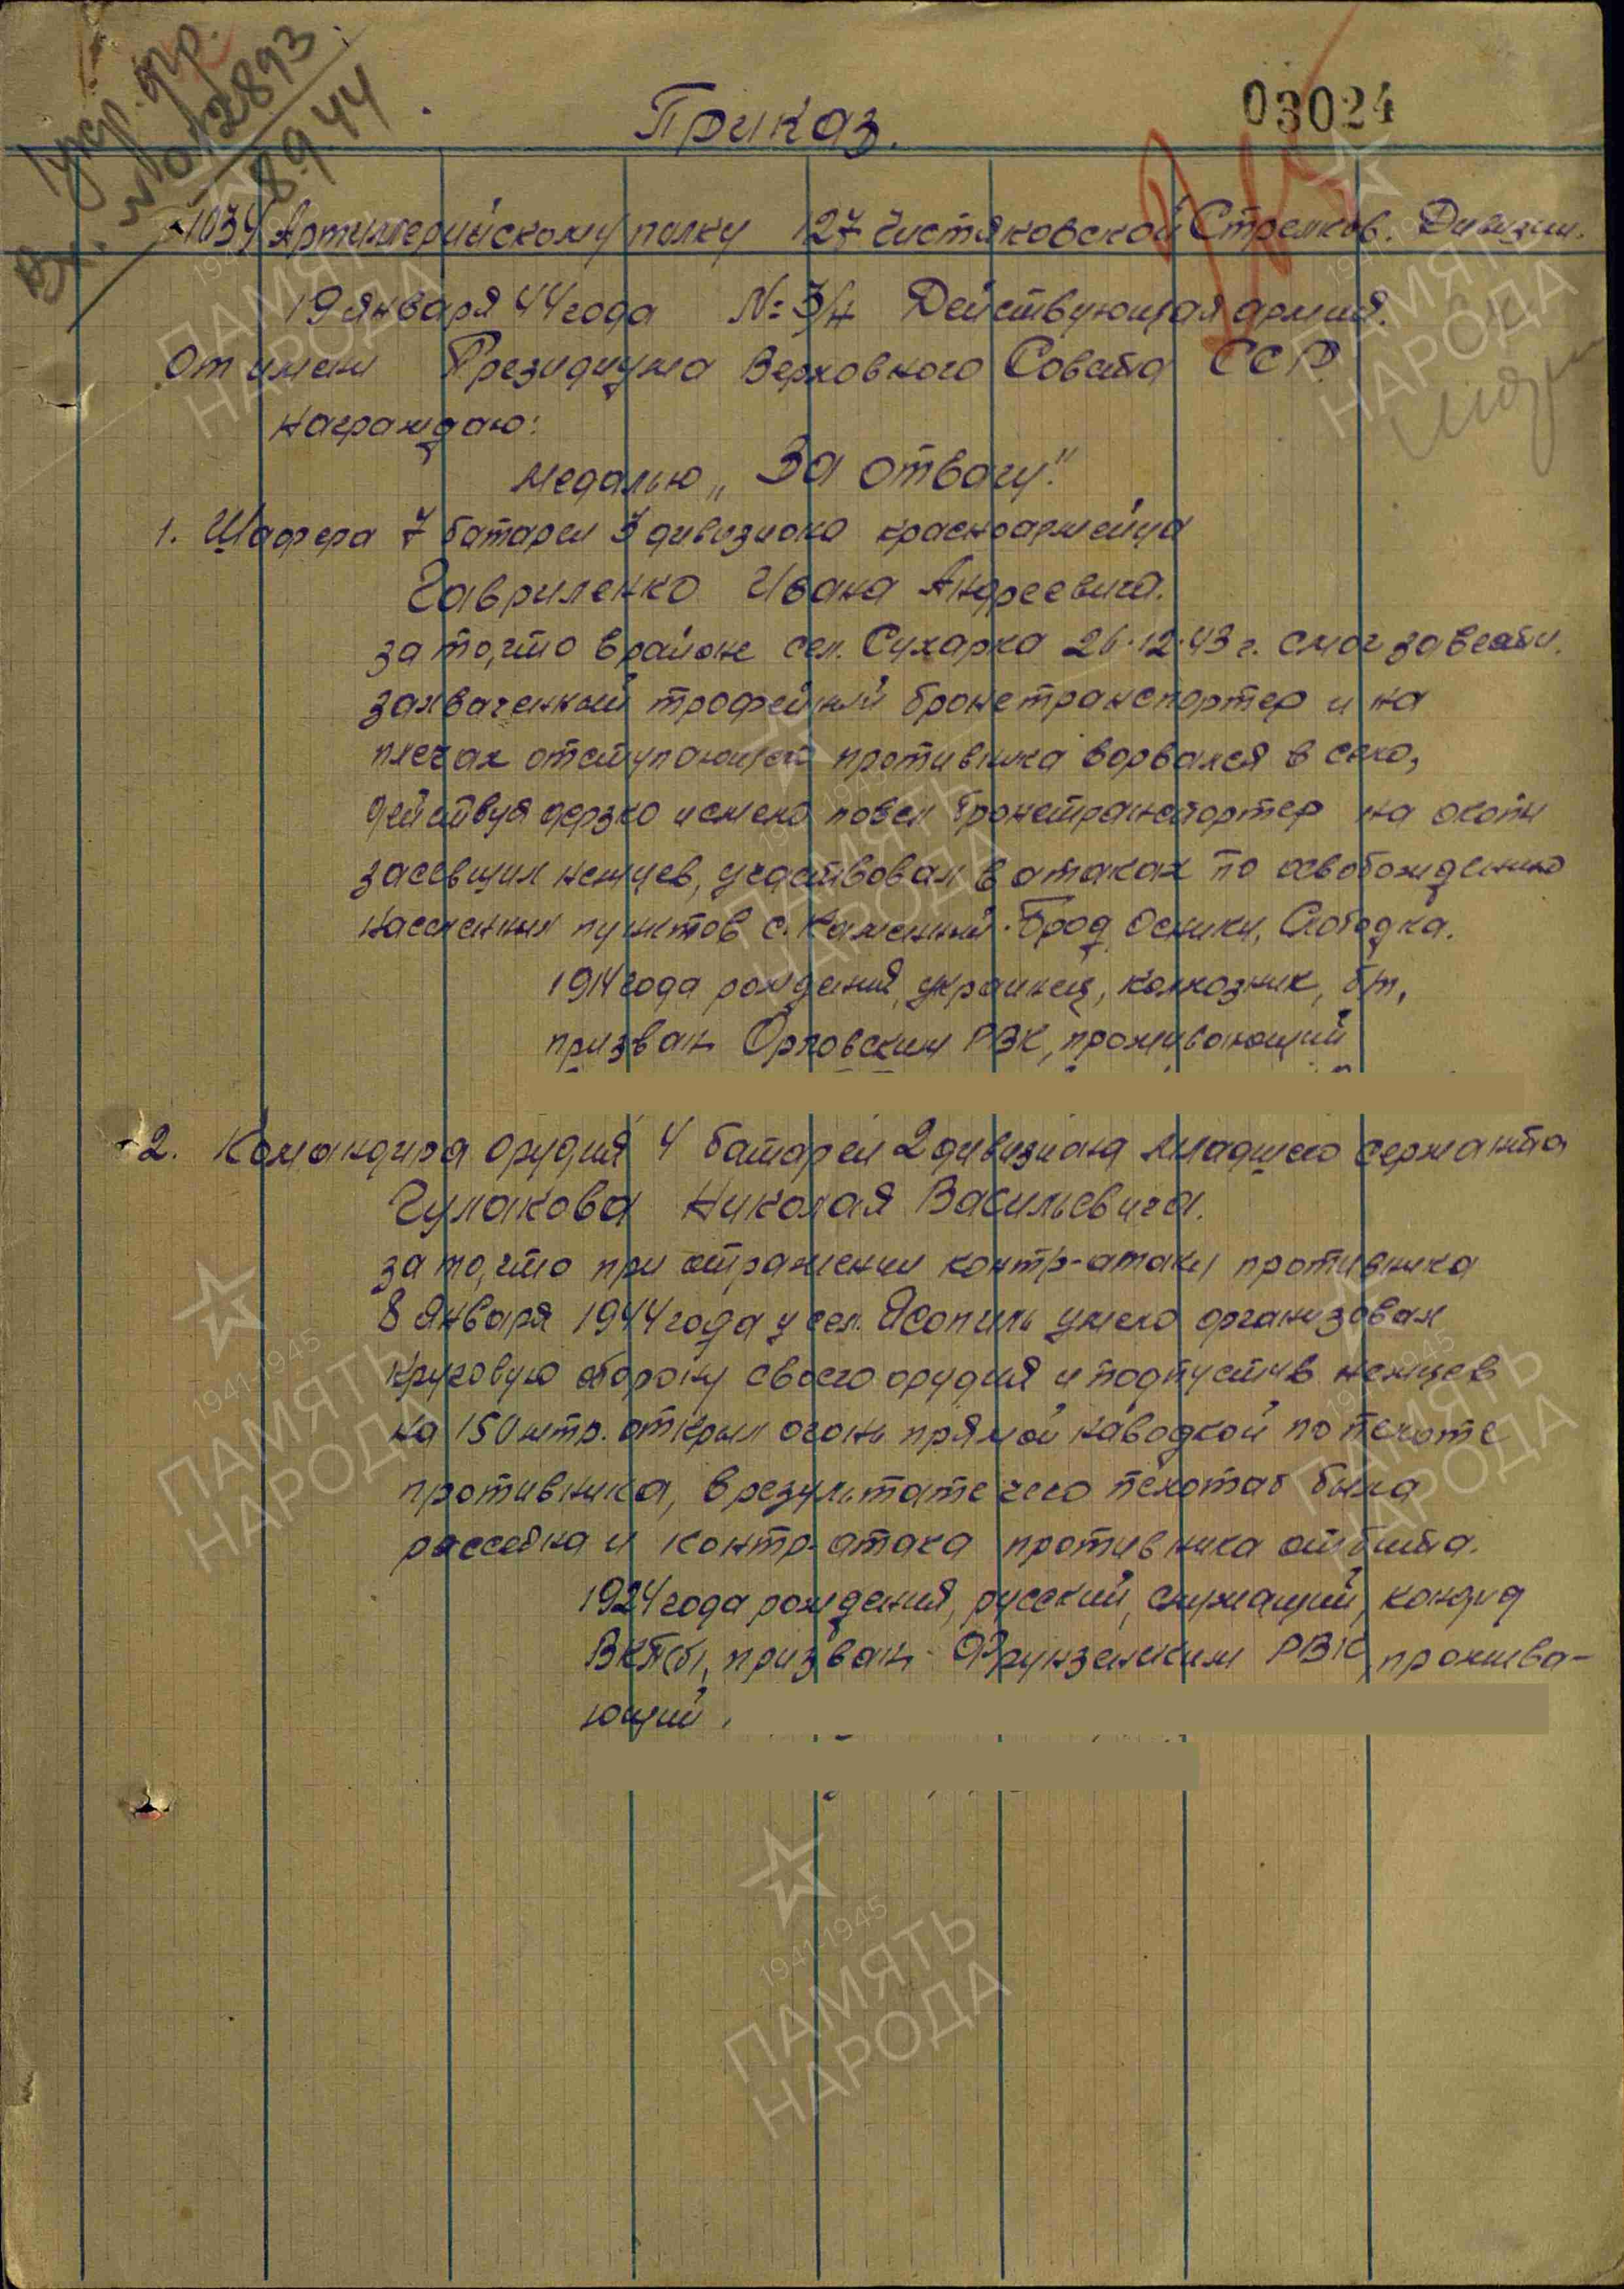 Упр. фр.
Вх. № 02893
8.9.44
03024
Приказ.
1034 Артиллерийскому полку 127 Чистяковской Стрелков. Дивизии.
19 января 44 года № 3/н Действующая армия.
От имени Президиума Верховного Совета ССР
награждаю:
медалью „За отвагу".
1. Шофера 7 батареи 3 дивизиона красноармейца
Гавриленко Ивана Андреевича.
за то, что в районе сел. Сухарка 26.12.43 г. смог завести
захваченный трофейный бронетранспортер и на
плечах отступающего противника ворвался в село,
действуя дерзко и смело повел бронетранспортер на окопы
засевших немцев, участвовал в атаках по освобождению
населенных пунктов с. Каменный-Брод, Осники, Слободка.
1914 года рождения, украинец, колхозник, б/п,
призван Орловским РВК, проживающий
2. Командира орудия 4 батареи 2 дивизиона младшего сержанта
Гулакова Николая Васильевича.
за то, что при отражении контр-атаки противника
8 Января 1944 года у сел. Ясопиль умело организовал
круговую оборону своего орудия и подпустив немцев
на 150 мтр. открыл огонь прямой наводкой по пехоте
противника, в результате чего пехота была
рассеяна и контр-атака противника отбита.
1924 года рождения, русский, служащий, кандид
ВКП(б), призван Фрунзенским РВК, прожива-
ющий
1941-1945
ПАМЯТЬ
НАРОДА
1941-1945
ПАМЯТЬ
НАРОДА
1941-1945
ПАМЯТЬ
НАРОДА
1941-1945
ПАМЯТЬ
НАРОДА
1941-1945
ПАМЯТЬ
НАРОДА
1941-1945
ПАМЯТЬ
НАРОДА